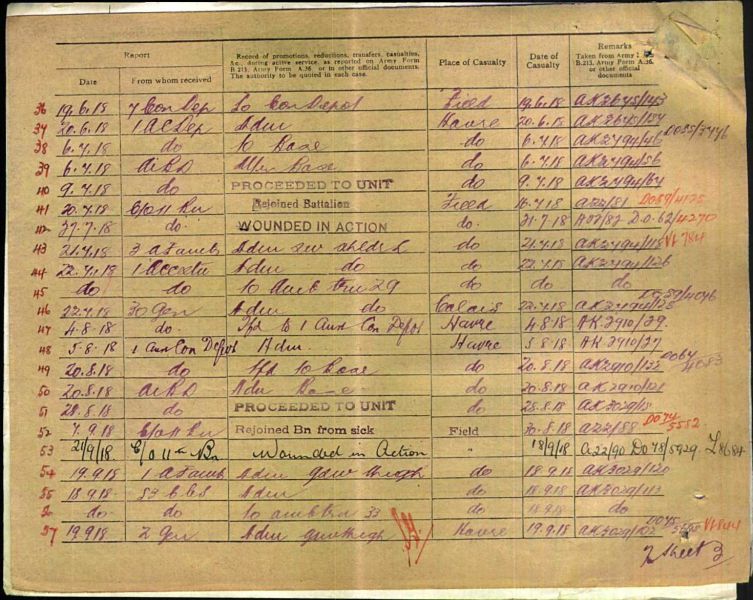 Report
Record of promotions, reductions, transfers, casualties, &c., during active service, as reported on Army Form B.213, Army Form A.36, or in other official documents. The authority to be quoted in each case.
Place of Casualty
Date of Casualty
Remarks
Taken from Army Form B.213, Army Form A.36, or other official documents
Date From whom received
36 19.6.18 7 Con Dep To Con Depot Field 19.6.18 AK2645/143
37 20.6.18 1 ACDep Adm Havre 20.6.18 AK2645/154
38 6.7.18 do To Base do 6.7.18 AK2794/46 DO55/3776
39 6.7.18 AIBD Base do 6.7.18 AK2794/56
40 9.7.18 do PROCEEDED TO UNIT do 9.7.18 AK2794/64
41 20.7.18 C/o 11 Bn Rejoined Battalion Field 10.7.18 A22/81 DO59/4125
42 27.7.18 do. WOUNDED IN ACTION do 21.7.18 A22/82 D.O.62/4270
43 21.7.18 3 AFamb Adm do 21.7.18 AK2794/118
44 22.7.18 1 Adm do do 22.7.18 AK2794/126
45 do do To 29 do do do
46 22.7.18 30 Gen Adm do Calais 22.7.18 AK2794/128
47 4.8.18 do. Tfd to 1 Aus Con Depot Havre 4.8.18 AK.2910/29.
48 5.8.18 1 Aus Con Depot Adm. Havre 5.8.18 AK.2910/37
49 20.8.18 do Tfd to Base do 20.8.18 AK2910/122
50 20.8.18 AIBD Adm Base do 20.8.18 AK2910/121
51 28.8.18 do PROCEEDED TO UNIT do 28.8.18 AK3029/18
52 7.9.18 C/o 11 Bn Rejoined Bn from sick Field 30.8.18 A22/88 DO74/5552
53 21/9/18. C/o 11th Bn Wounded in Action " 18/9/18 A22/90 DO78/5929 L8684
54 19.9.18 1 AFamb Adm gsw thigh do 18.9.18 AK3029/120
55 18.9.18 53 CCS Adm do 18.9.18 AK3029/113
do do To amb trn 33 do 18.9.18 do
57 19.9.18 2 Gen Adm gsw thigh Havre 19.9.18 AK3029/107
Sheet 3